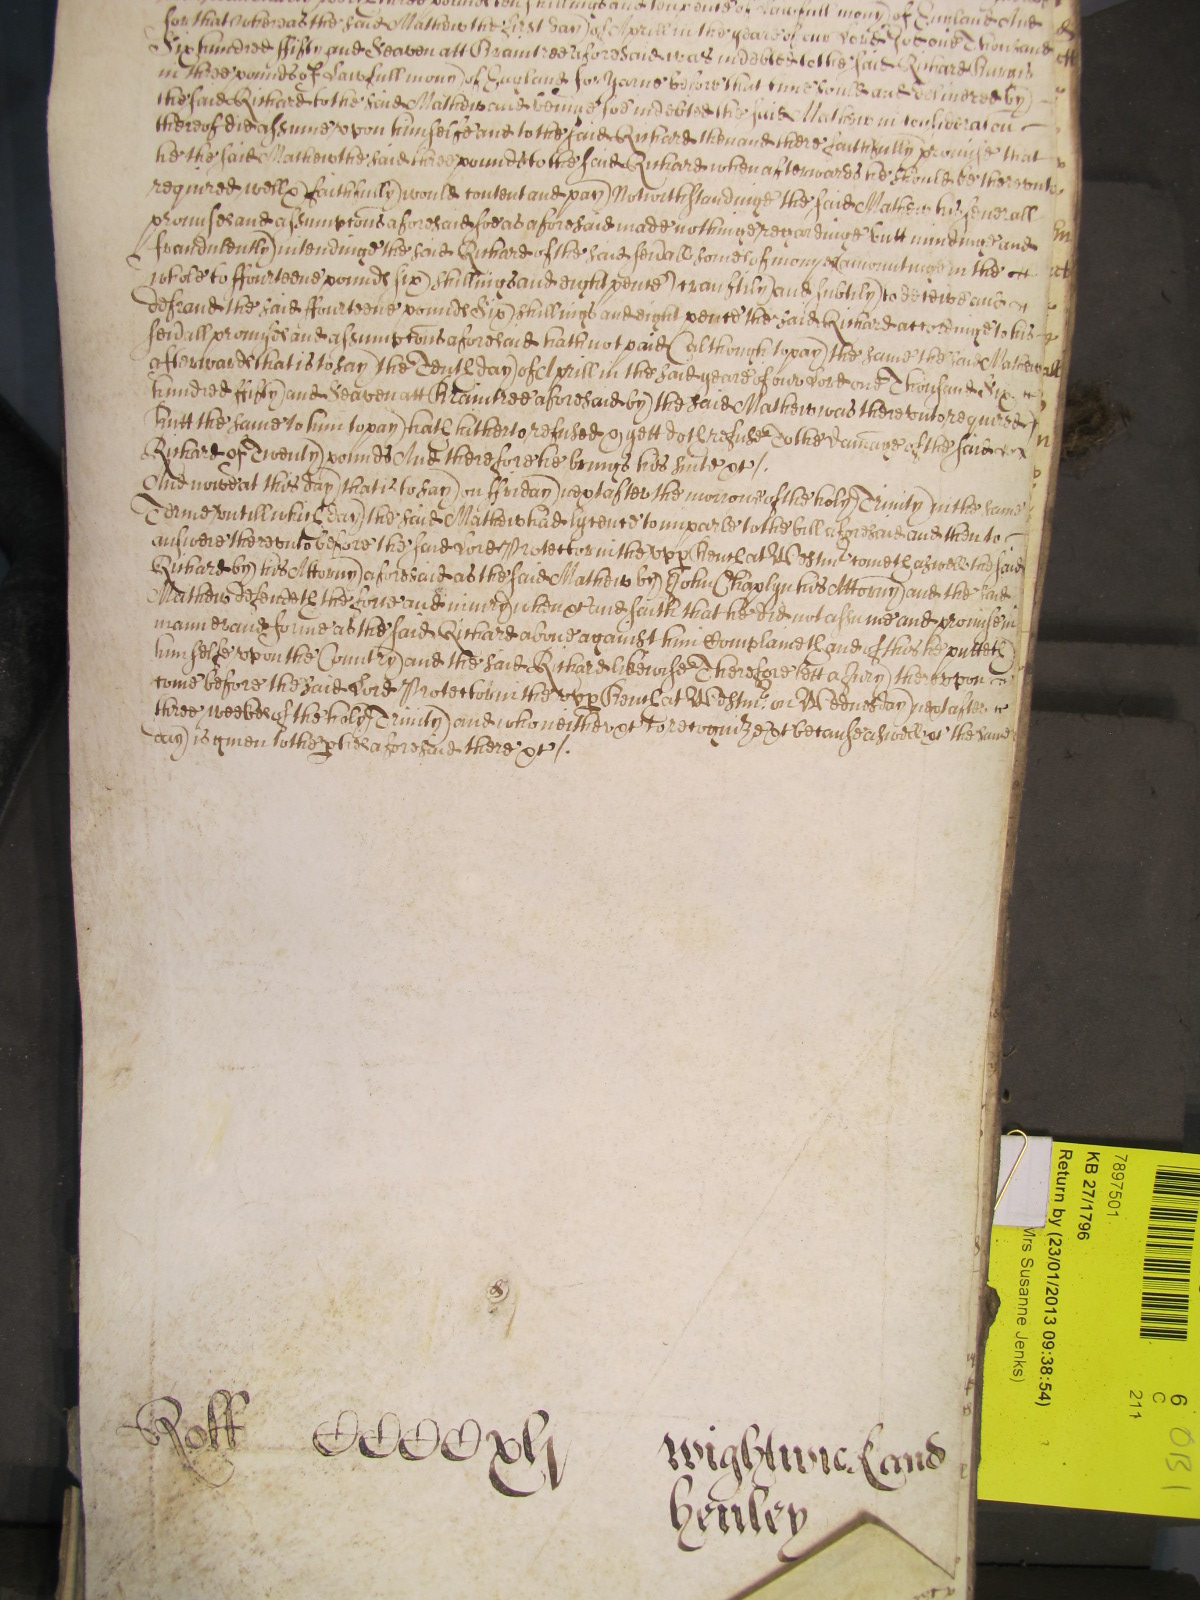 for that whereas the said Mathew the first day of Aprill in the yeare of our Lord God one Thousand
Six hundred fifty and Seaven att Braintree aforesaid was indebted to the said Richard
in three pounds of lawfull mony of England for yarne before that time sould and delivered by
the said Richard to the said Mathew and beinge soe indebted the said Mathew in consideracon
thereof did assume upon himselfe and to the said Richard then and there faithfully promise that
he the said Mathew the said three pounds to the said Richard when afterwards he should be thereunto
required well & faithfully would content and pay Notwithstandinge the said Mathew his severall
promises and assumptons aforesaid soe as aforesaid made nothinge regardinge butt mindinge and
fraudulently intendinge the said Richard of the said sevall somes of mony amountinge in the
whole to ffourteene pounds six shillings and eight pence craftily and subtily to deceive and
defraud the said ffourteene pounds Six shillings and eight pence the said Richard accordinge to his
sevall promises and assumptons aforesaid hath not paid (although to pay) the same the said Mathew
afterwards that is to say the Tenth day of Aprill in the said yeare of our Lord one Thousand Six
hundred fifty and Seaven att Braintree aforesaid by the said Mathew was thereunto required
Butt the same to him to pay hath hitherto refused & yett doth refuse To the damage of the said
Richard of Twenty pounds And therefore he brings his suite &c /.
And now at this day that is to say on ffriday next after the morrow of the holy Trinity in the same
Terme untill which day the said Mathew had lycence to imparle to the bill aforesaid and then to
answere thereunto before the said Lord Protector in the upp Bench at Westmr cometh aswell the said
Richard by his Attorny aforesaid as the said Mathew by John Chaplyn his Attorny and the said
Mathew defendeth the force and iniury when &c and saith that he did not assume and promise in
manner and forme as the said Richard above against him Complaineth and of this he putteth
himselfe upon the Country and the said Richard likewise Therefore lett a Jury thereupon
come before the said Lord Protector in the upp Bench at Westmr on Wednesday next after
three weekes of the holy Trinity and who neither &c to recognize &c because aswell &c the same
day is given to the pties aforesaid there &c /.
Roll CCCCxlj Wightwick and
Henley
7897501
KB 27/1796
Return by (23/01/2013 09:38:54)
Mrs Susanne Jenks)
6
C
211